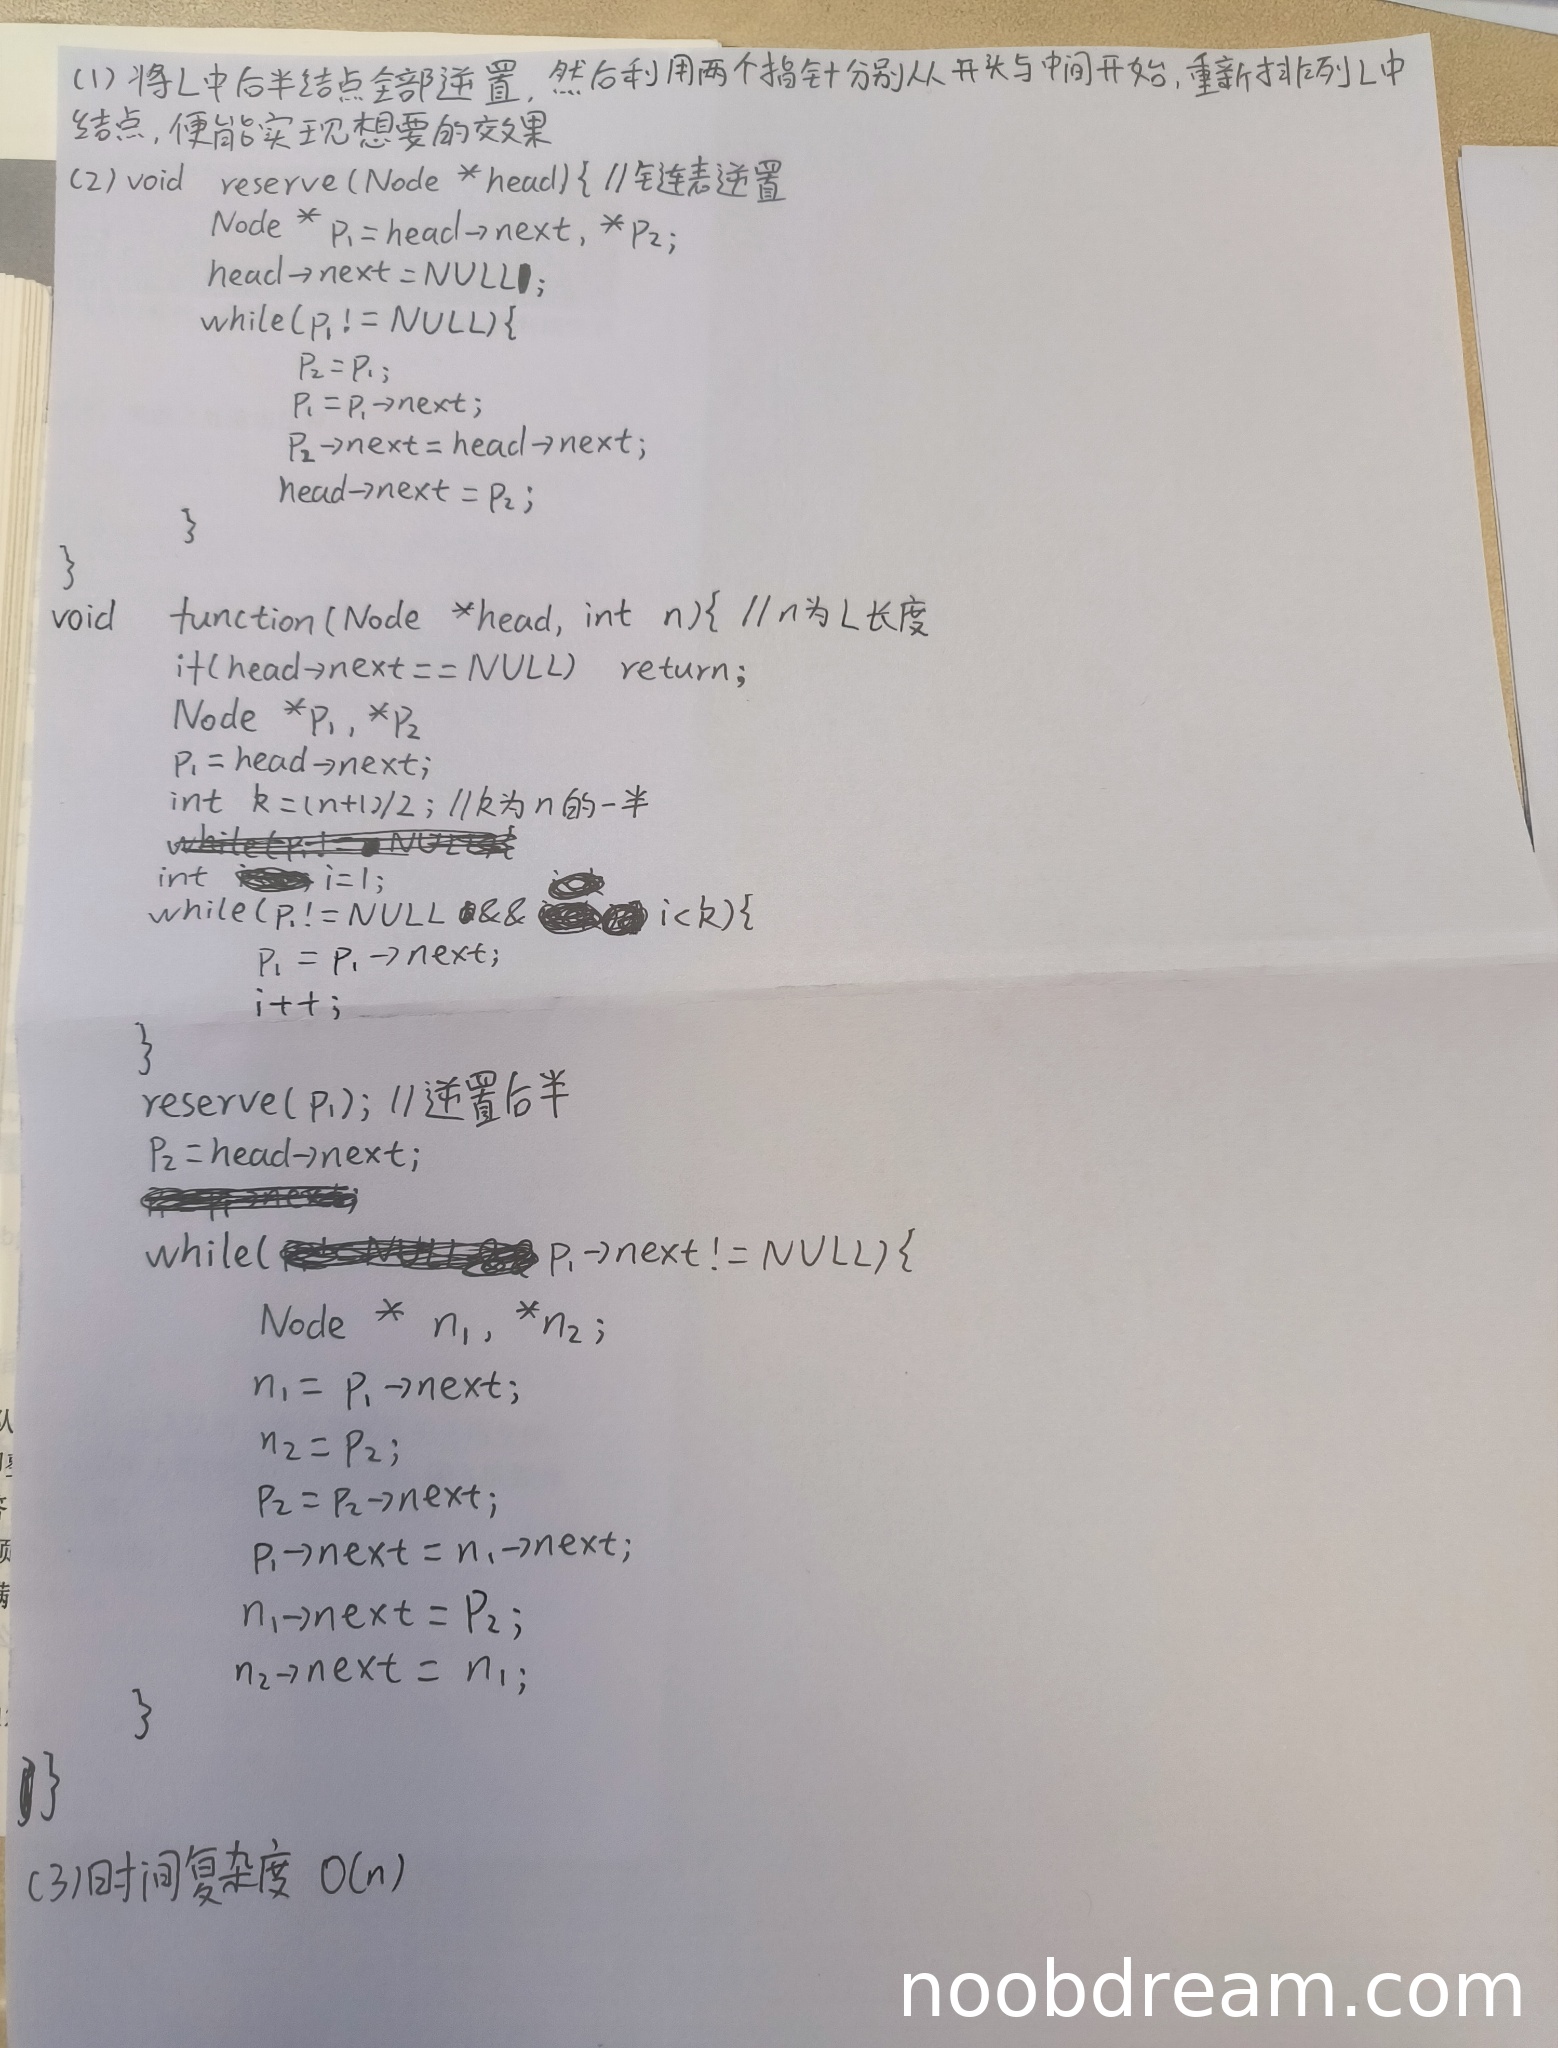 (1) 将L中后半结点全部逆置，然后利用两个指针分别从开头与中间开始，重新排列L中
结点，便能实现想要的效果
(2) void reserve(Node *head){ //链表逆置
Node * p₁=head→next, *p₂;
head→next=NULL;
while(p₁!=NULL){
p₂=p₁;
p₁=p₁→next;
p₂→next=head→next;
head→next=p₂;
}
}
void function(Node *head, int n){ //n为L长度
if(head→next==NULL) return;
Node *p₁, *p₂
p₁=head→next;
int k=(n+1)/2; //k为n的一半
int i=1;
while(p₁!=NULL && i<k){
p₁=p₁→next;
i++;
}
reserve(p₁); //逆置后半
p₂=head→next;
while( p₁→next!=NULL){
Node * n₁, *n₂;
n₁=p₁→next;
n₂=p₂;
p₂=p₂→next;
p₁→next=n₁→next;
n₁→next=p₂;
n₂→next=n₁;
}
}
(3)时间复杂度 O(n)
noobdream.com